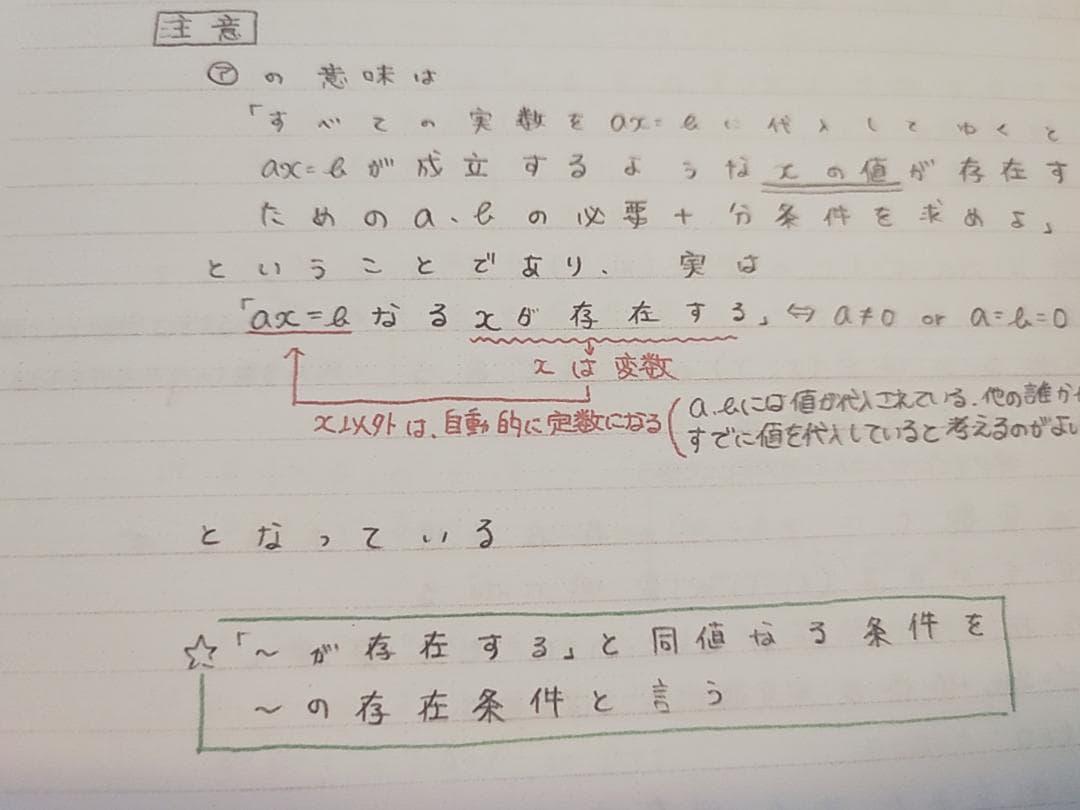 主意
㋐の意味は
「すべての実数をax=bに代入してゆくと
ax=bが成立するようなxの値が存在す
ためのa、bの必要十分条件を求めよ」
ということであり、実は
「ax=bなるxが存在する」⇔a≠0 or a=b=0
xは変数
x以外は、自動的に定数になる(a、bには値が代入されている、他の誰か
すでに値を代入していると考えるのがよい
となっている
☆「～が存在する」と同値なる条件を
～の存在条件と言う